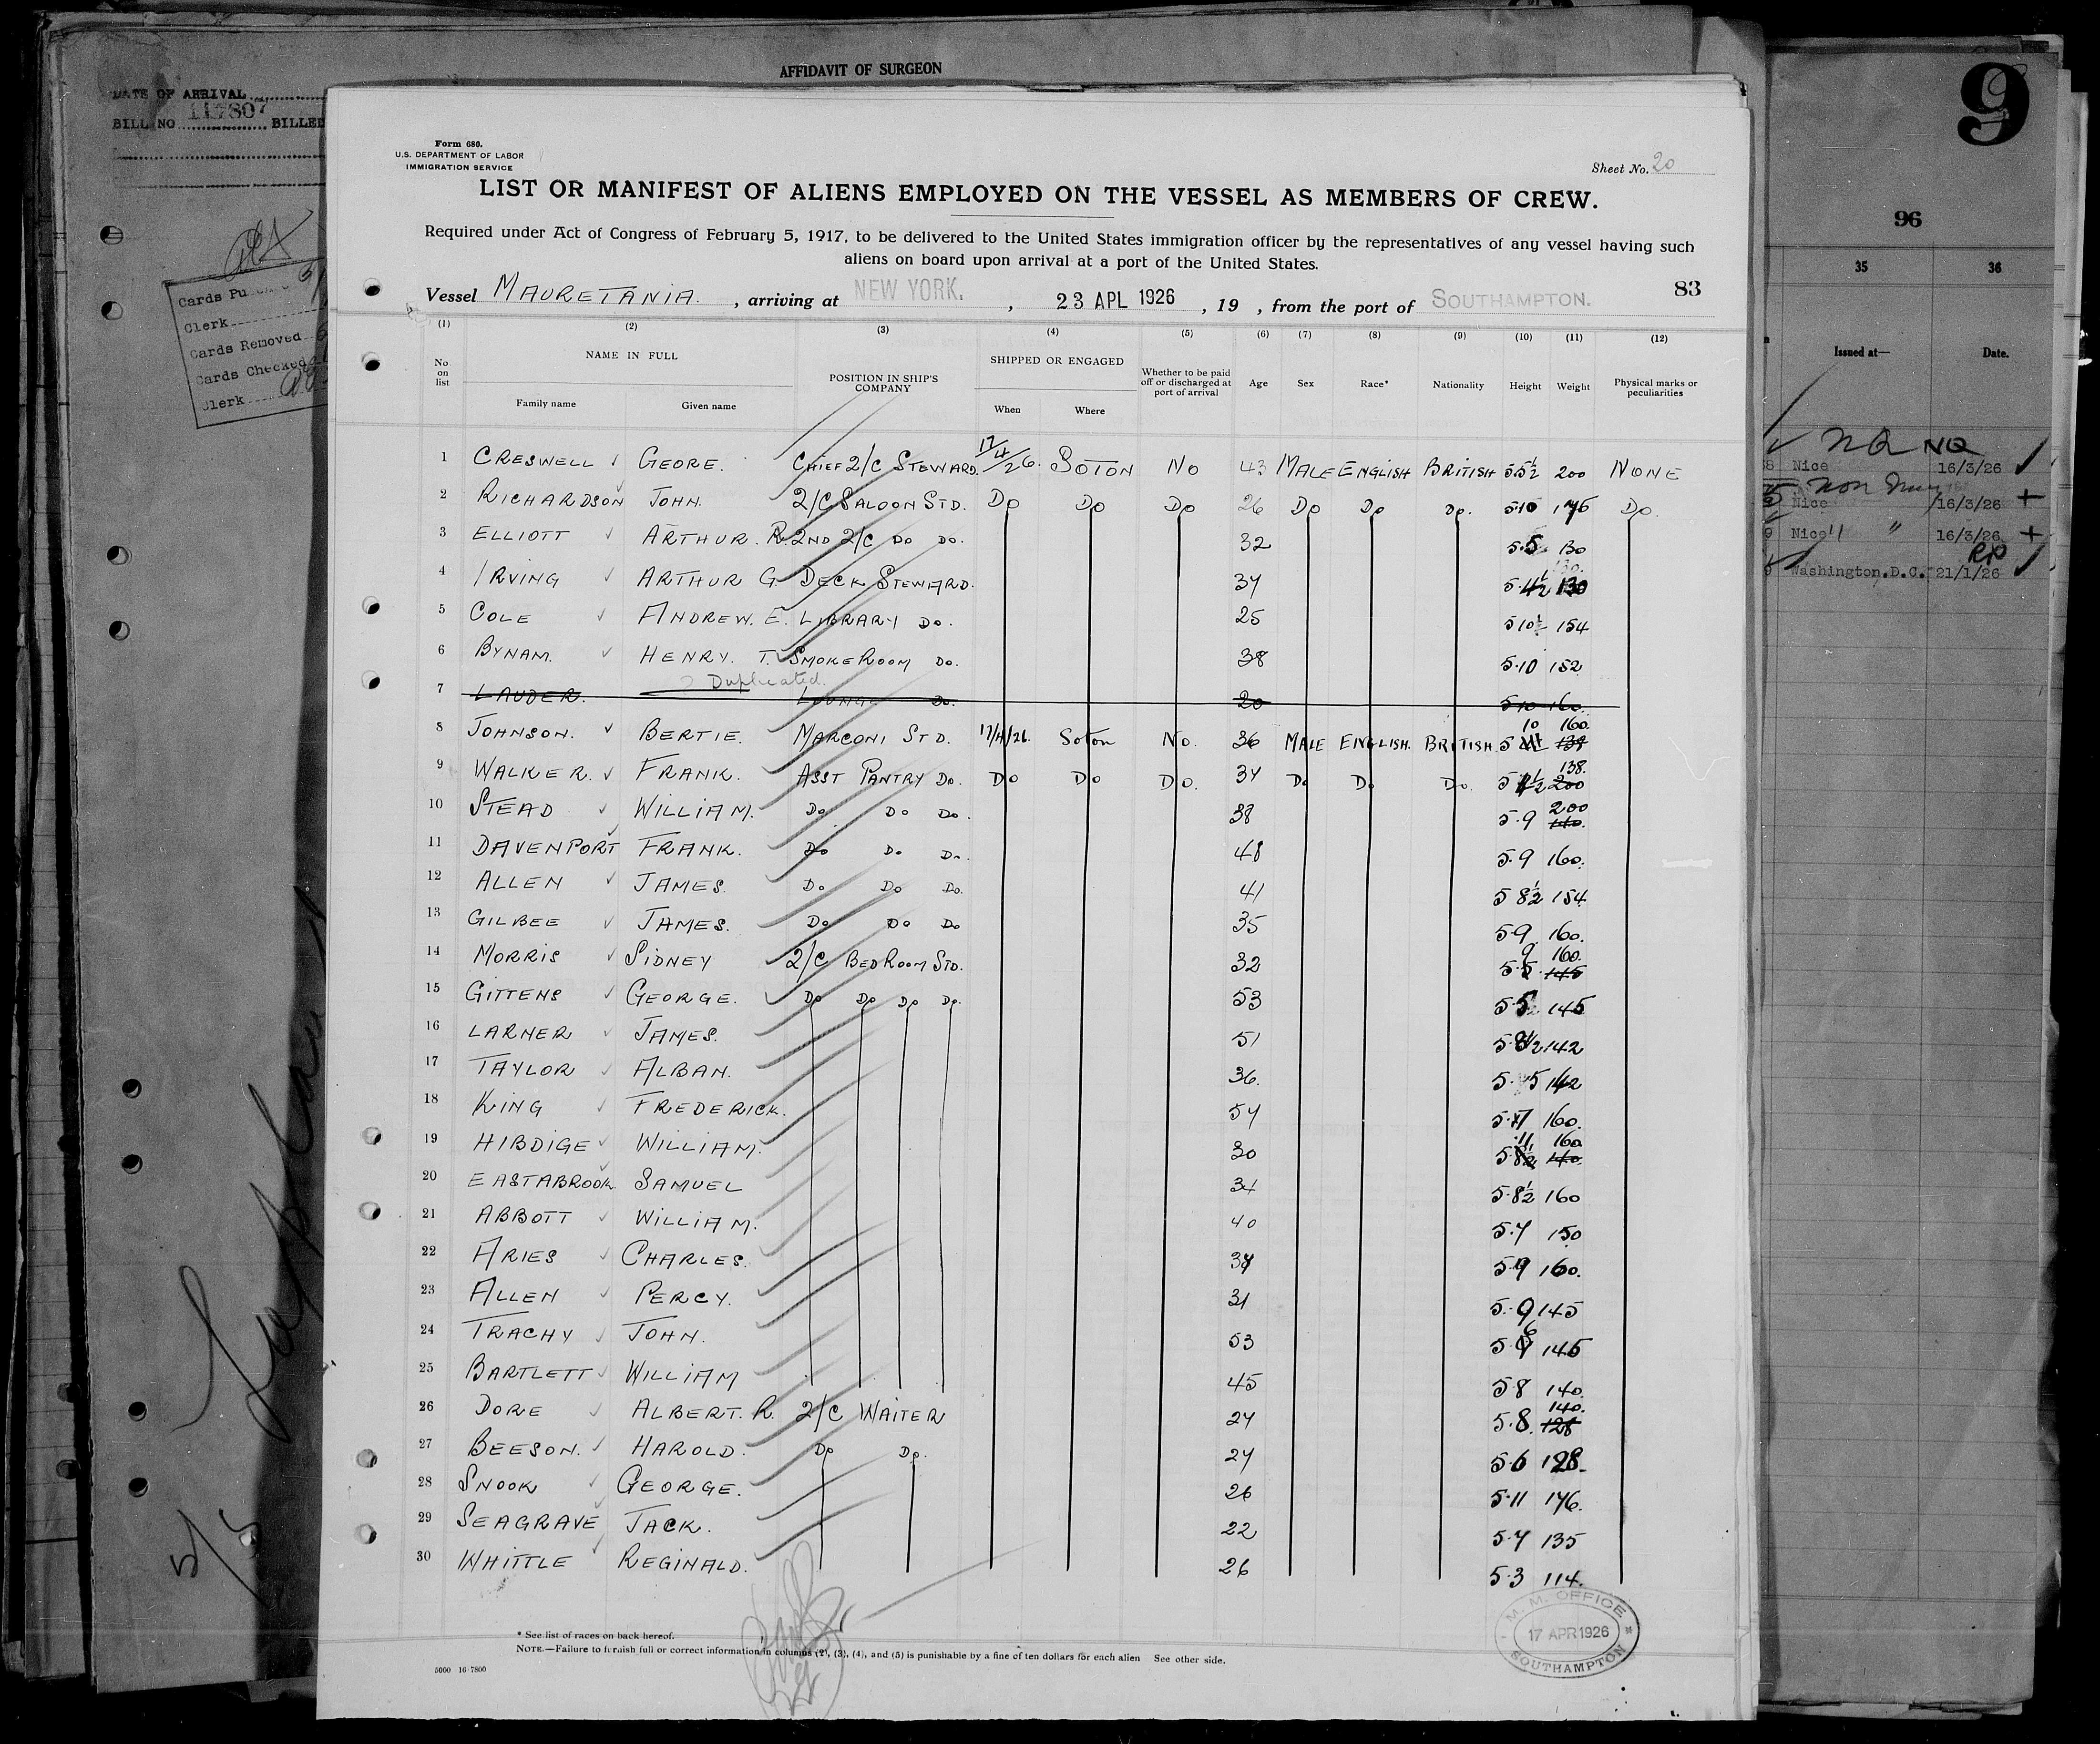 AFFIDAVIT OF SURGEON
DATE OF ARRIVAL
BILL NO 117807 BILLED
Cards
Clerk
Cards Removed
Cards Checked
Clerk
5/5
9
96
35 36
Issued at— Date.
NO
Nice 16/3/26
Nice 16/3/26 +
Nice " " 16/3/26 +
Washington.D.C. 21/1/26
Form 680.
U.S. DEPARTMENT OF LABOR
IMMIGRATION SERVICE
Sheet No. 20
LIST OR MANIFEST OF ALIENS EMPLOYED ON THE VESSEL AS MEMBERS OF CREW.
Required under Act of Congress of February 5, 1917, to be delivered to the United States immigration officer by the representatives of any vessel having such
aliens on board upon arrival at a port of the United States.
83
Vessel MAURETANIA. , arriving at NEW YORK. , 23 APL 1926 , 19 , from the port of SOUTHAMPTON.
(1) (2) (3) (4) (5) (6) (7) (8) (9) (10) (11) (12)
No on list NAME IN FULL POSITION IN SHIP'S COMPANY SHIPPED OR ENGAGED Whether to be paid off or discharged at port of arrival Age Sex Race* Nationality Height Weight Physical marks or peculiarities
Family name Given name When Where
1 CRESWELL GEORE. CHIEF 2/C STEWARD. 17/4/26. SOTON NO 43 MALE ENGLISH BRITISH 5.5½ 200 NONE
2 RICHARDSON JOHN. 2/C SALOON STD. DO DO DO 26 DO DO DO. 5 10 175 DO.
3 ELLIOTT ARTHUR. R. 2ND 2/C DO DO. 32 5.5 130
4 IRVING ARTHUR G DECK STEWARD. 37 5.4½ 130
5 COLE ANDREW. E. LIBRARY DO. 25 5 10½ 154
6 BYNAM. HENRY. T. SMOKE ROOM DO. 38 5.10 152
7 LAUDER. Duplicated. LOUNGE DO. 20 5 10 160.
8 JOHNSON. BERTIE. MARCONI STD. 17/4/26. Soton NO. 36 MALE ENGLISH. BRITISH. 5 10 160.
9 WALKER. FRANK. ASST PANTRY DO. DO DO DO. 37 DO DO DO. 138.
10 STEAD WILLIAM. DO DO DO. 38 5.9 200
11 DAVENPORT FRANK. DO DO DO. 48 5.9 160.
12 ALLEN JAMES. DO DO DO. 41 5 8½ 154
13 GILBEE JAMES. DO DO DO 35 5.9. 160.
14 MORRIS SIDNEY 2/C BED ROOM STD. 32 5.9 160.
15 GITTENS GEORGE. DO DO DO DO. 53 5 5 145
16 LARNER JAMES. 51 5.8½ 142
17 TAYLOR ALBAN. 36. 5.5 142
18 KING FREDERICK. 54 5.7 160.
19 HIBDIGE WILLIAM. 30 5.11 160
20 EASTABROOK SAMUEL 34 5.8½ 160
21 ABBOTT WILLIAM. 40 5.7 150
22 ARIES CHARLES. 5.9 160.
23 ALLEN PERCY. 31 5.9 145
24 TRACHY JOHN. 53 5.6 145
25 BARTLETT WILLIAM 45 5.8 140.
26 DORE ALBERT. R. 2/C WAITER 27 5.8. 140.
27 BEESON. HAROLD. DO DO. 27 5.6 128.
28 SNOOK GEORGE. 26 5.11 176.
29 SEAGRAVE JACK. 22 5.7 135
30 WHITTLE REGINALD. 26 5.3 114.
M. M. OFFICE
17 APR 1926
SOUTHAMPTON
* See list of races on back hereof.
NOTE.—Failure to furnish full or correct information in columns (2), (3), (4), and (5) is punishable by a fine of ten dollars for each alien See other side.
5000 16-7800